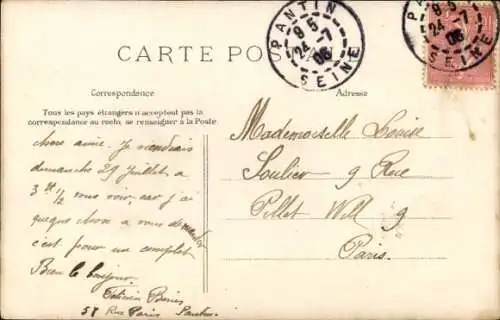 CARTE POSTALE
PANTIN
9 5
24 -7
06
SEINE
PANTIN
9 5
24 -7
06
SEINE
Correspondance
Adresse
Tous les pays étrangers n'acceptent pas la
correspondance au recto, se renseigner à la Poste.
chère amie. Je viendrais
dimanche 29 juillet à
3 H 1/2 vous voir, car j'ai
quelque chose a vous
c'est pour un complet
Bien le bonjour
58 Rue Paris Pantin.
Mademoiselle Louise
Soulier 9 Rue
Pillet Will 9
Paris.